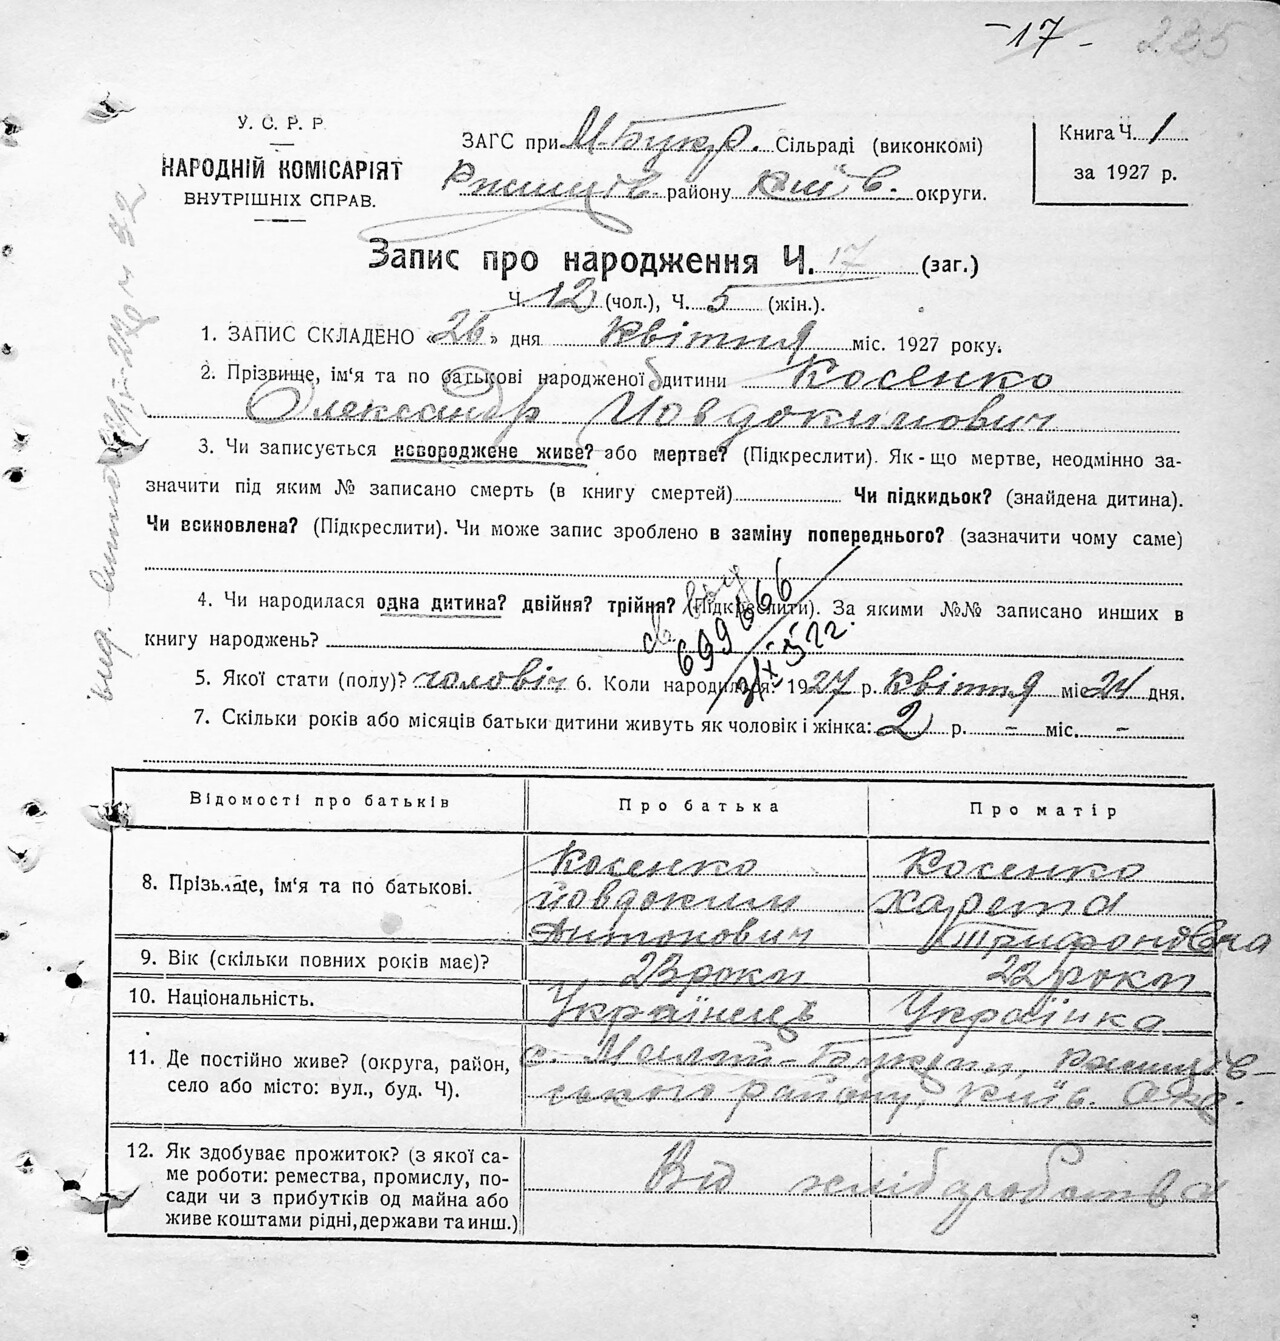 -17- 235
У. С. Р. Р.
НАРОДНІЙ КОМІСАРІЯТ
ВНУТРІШНІХ СПРАВ.
ЗАГС при М-Букр. Сільраді (виконкомі)
Ржищів. району Київ. округи.
Книга Ч. 1
за 1927 р.
Запис про народження Ч. 17 (заг.)
Ч. 12 (чол.), Ч. 5 (жін.).
1. ЗАПИС СКЛАДЕНО «26» дня квітня міс. 1927 року.
2. Прізвище, ім'я та по батькові народженої дитини Косенко
Олександр Йовдокимович
3. Чи записується новороджене живе? або мертве? (Підкреслити). Як-що мертве, неодмінно за-
значити під яким № записано смерть (в книгу смертей) Чи підкидьок? (знайдена дитина).
Чи всиновлена? (Підкреслити). Чи може запис зроблено в заміну попереднього? (зазначити чому саме)
4. Чи народилася одна дитина? двійня? трійня? (Підкреслити). За якими №№ записано инших в
книгу народжень?
699666
5. Якої стати (полу)? чоловіч 6. Коли народилася: 1927 р. квітня міс 24 дня.
7. Скільки років або місяців батьки дитини живуть як чоловік і жінка: 2 р. - міс. -
Відомості про батьків Про батька Про матір
8. Прізвище, ім'я та по батькові.
Косенко Йовдоким Антонович
Косенко Харита Трифоновна
9. Вік (скільки повних років має)? 23 роки 22 роки
10. Національність. Українець Українка
11. Де постійно живе? (округа, район,
село або місто: вул., буд. Ч).
с. Малий-Букрин, Ржищів-
ського району, Київ. Окр.
12. Як здобуває прожиток? (з якої са-
ме роботи: ремества, промислу, по-
сади чи з прибутків од майна або
живе коштами рідні, держави та инш.)
Від хліборобства